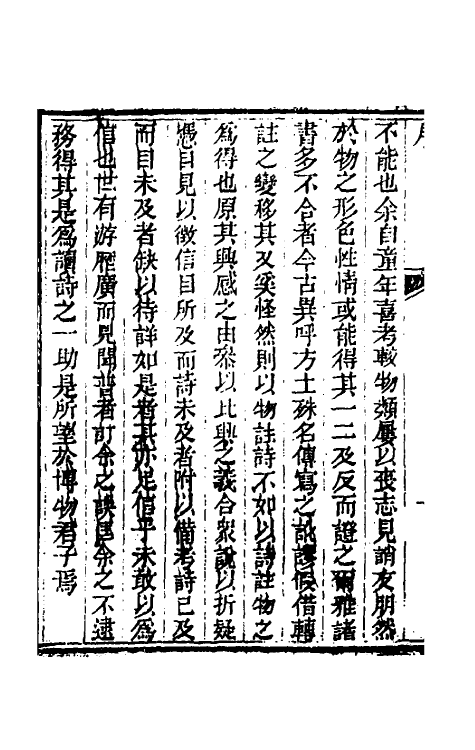 不能也余自童年喜考較物類屢以喪志見誚友朋然
於物之形色性情或能得其一二及反而證之爾雅諸
書多不合者今古異呼方土殊名傳寫之訛謬假借轉
註之變移其又奚怪然則以物註詩不如以詩註物之
為得也原其興感之由叅以比興之義合衆說以折疑
憑目見以徵信目所及而詩未及者附以備考詩已及
而目未及者缺以待詳如是者其亦足信乎未敢以為
信也世有游歷廣而見聞普者訂余之誤匡余之不逮
務得其是為讀詩之一助是所望於博物君子焉